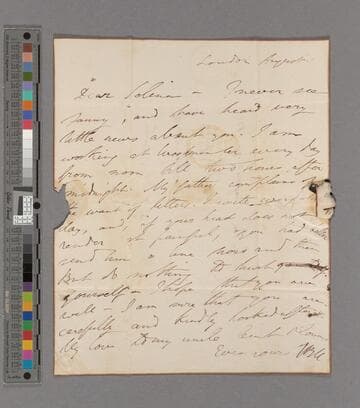 London August
Dear Selina - I never see
Fanny, and have heard very
little news about you. I am
working at Westminster every day
from noon till two hours after
midnight. My father complains of
the want of letters. I write every
day, and, if your head does not
render it painful, you had better
send him a line now and then
But do nothing to fatigue
yourself - I hope that you are
well - I am sure that you are
carefully and kindly looked after.
My love to my uncle Aunt &
Ever yours TBM